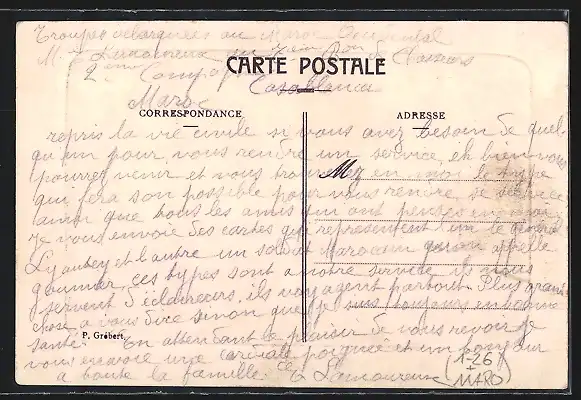 Troupes débarquées au Maroc Occidental
M. E. Lamoureux au 7ème Bon de Chasseurs
2ème Compagnie
CARTE POSTALE
Casablanca
Maroc
CORRESPONDANCE
ADRESSE
repris la vie civile si vous avez besoin de quel-
qu'un pour vous rendre un service, eh bien vous
M
pourrez venir et vous trouverez en moi le type
qui fera son possible pour vous rendre se service
ainsi que tous les amis qui ont pensés en moi
Je vous envoie des cartes que representent un le general
Lyautey et l'autre un soldat Marocain qu'on appelle
goummier, ces types sont a notre service ils nous
servent d'éclaireurs, ils voyagent partout. Plus grand
chose a vous dire sinon que je suis toujours en bonne
santé. En attendant le plaisir de vous revoir je
P. Grébert
vous envoie une cordiale poignée et un bonjour
a toute la famille. E Lamoureux
(1-26
+
MARO)